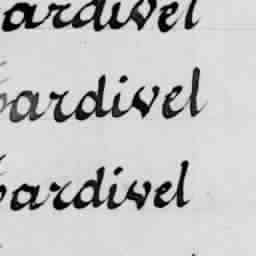 ardivel
ardivel
ardivel